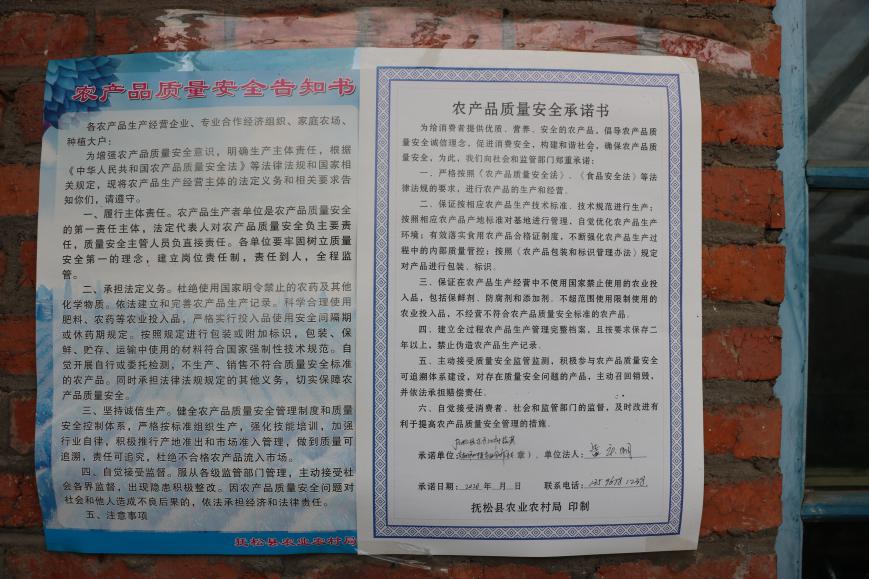 农产品质量安全告知书
各农产品生产经营企业、专业合作经济组织、家庭农场、
种植大户:
为增强农产品质量安全意识，明确生产主体责任，根据
《中华人民共和国农产品质量安全法》等法律法规和国家相
关规定，现将农产品生产经营主体的法定义务和相关要求告
知你们，请遵守。
一、履行主体责任。农产品生产者单位是农产品质量安全
的第一责任主体，法定代表人对农产品质量安全负主要责
任，质量安全主管人员负直接责任。各单位要牢固树立质量
安全第一的理念，建立岗位责任制，责任到人，全程监
管。
二、承担法定义务。杜绝使用国家明令禁止的农药及其他
化学物质。依法建立和完善农产品生产记录。科学合理使用
肥料、农药等农业投入品，严格实行投入品使用安全间隔期
或休药期规定。按照规定进行包装或附加标识，包装、保
鲜、贮存、运输中使用的材料符合国家强制性技术规范。自
觉开展自行或委托检测，不生产、销售不符合质量安全标准
的农产品。同时承担法律法规规定的其他义务，切实保障农
产品质量安全。
三、坚持诚信生产。健全农产品质量安全管理制度和质量
安全控制体系，严格按标准组织生产，强化技能培训，加强
行业自律，积极推行产地准出和市场准入管理，做到质量可
追溯，责任可追究，杜绝不合格农产品流入市场。
四、自觉接受监督。服从各级监管部门管理，主动接受社
会各界监督，出现隐患积极整改。因农产品质量安全问题对
社会和他人造成不良后果的，依法承担经济和法律责任。
五、注意事项
抚松县农业农村局
农产品质量安全承诺书
为给消费者提供优质、营养、安全的农产品，倡导农产品质
量安全诚信理念，促进消费安全，构建和谐社会，确保农产品质
量安全，为此，我们向社会和监管部门郑重承诺:
一、严格按照《农产品质量安全法》、《食品安全法》等法
律法规的要求，进行农产品的生产和经营.
二、保证按相应农产品生产技术标准、技术规范进行生产;
按照相应农产品产地标准对基地进行管理，自觉优化农产品生产
环境;有效落实食用农产品合格证制度，不断强化农产品生产过
程中的内部质量管控;按照《农产品包装和标识管理办法》规定
对产品进行包装、标识.
三、保证在农产品生产经营中不使用国家禁止使用的农业投
入品，包括保鲜剂、防腐剂和添加剂.不超范围使用限制使用的
农业投入品，不经营不符合农产品质量安全标准的农产品.
四、建立全过程农产品生产管理完整档案，且按要求保存二
年以上，禁止伪造农产品生产记录.
五、主动接受质量安全监管监测，积极参与农产品质量安全
可追溯体系建设，对存在质量安全问题的产品，主动召回销毁，
并依法承担赔偿责任.
六、自觉接受消费者、社会和监管部门的监督，及时改进有
利于提高农产品质量安全管理的措施.
承诺单位 章)、单位法人:
承诺日期:2020年 月 日 联系电话:
抚松县农业农村局 印制